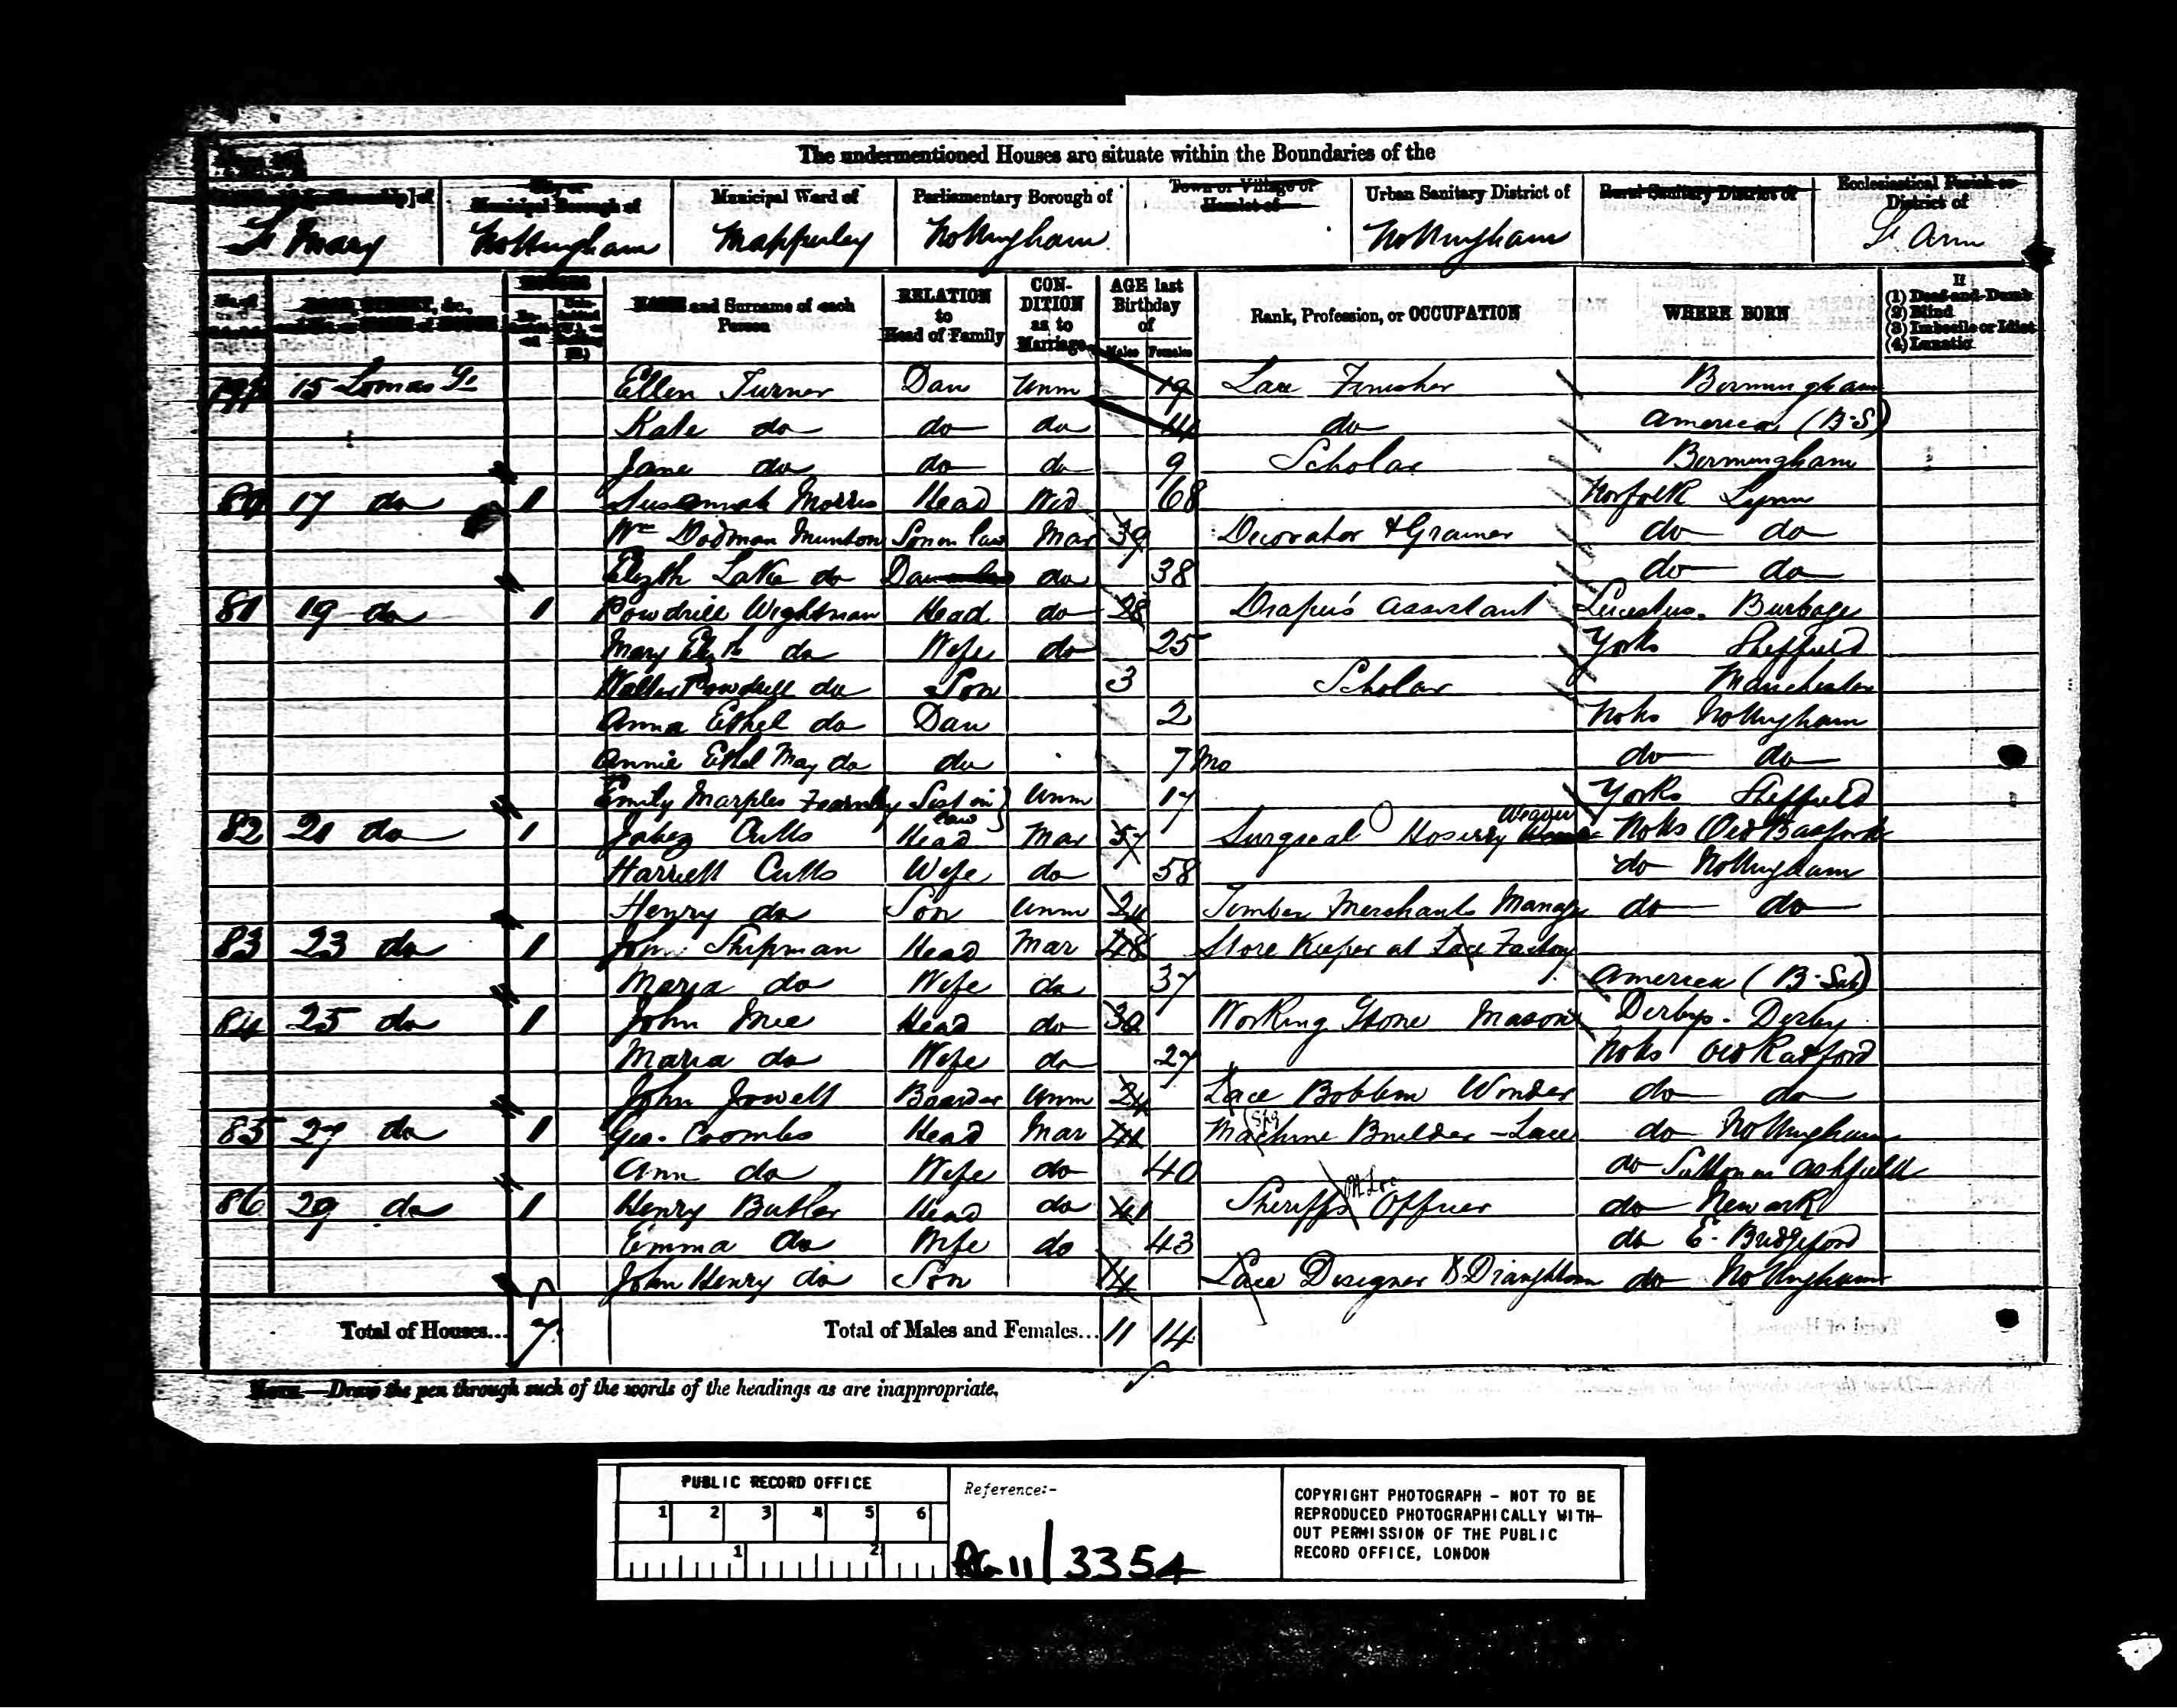 The undermentioned Houses are situate within the Boundaries of the
City or Municipal Borough of Municipal Ward of Parliamentary Borough of Town or Village or Hamlet of Urban Sanitary District of Rural Sanitary District of Ecclesiastical Parish or District of
St Mary Nottingham Mapperley Nottingham Nottingham St Ann
HOUSES NAME and Surname of each Person RELATION to Head of Family CON-DITION as to Marriage AGE last Birthday of Males Females Rank, Profession, or OCCUPATION WHERE BORN If (1) Deaf-and-Dumb (2) Blind (3) Imbecile or Idiot (4) Lunatic
15 Lomas Ellen Turner Dau Unm 19 Lace Finisher Birmingham
Kate do do do 14 do America (B.S)
Jane do do do 9 Scholar Birmingham
80 17 do 1 Susannah Morris Head Wid 68 Norfolk Lynn
Wm Dodman Munton Son in law Mar 39 Decorator & Grainer do do
Elizth Lake do Dau do 38 do do
81 19 do 1 Powdrill Wightman Head do 28 Draper's Assistant Leicesters. Burbage
Mary Elizth do Wife do 25 Yorks Sheffield
Walter Powdrill do Son 3 Scholar Manchester
Anna Ethel do Dau 2 Notts Nottingham
Annie Ethel May do do 7 Mo do do
Emily Marples Fearnley Sist in law Unm 17 Yorks Sheffield
82 21 do 1 Jabez Cutts Head Mar 57 Surgical Hosiery Weaver Notts Old Basford
Harriett Cutts Wife do 58 do Nottingham
Henry do Son Unm 24 Timber Merchants Manager do do
83 23 do 1 John Shipman Head Mar 48 Store Keeper at Lace Factory
Maria do Wife do 37 America (B. Sub)
84 25 do 1 John Mee Head do 30 Working Stone Mason Derbys. Derby
Maria do Wife do 27 Notts Old Radford
John Jowett Boarder Unm 24 Lace Bobbin Winder do do
85 27 do 1 Geo. Coombs Head Mar Machine Builder - Lace do Nottingham
Ann do Wife do 40 do Sutton in Ashfield
86 29 do 1 Henry Butler Head do 41 Sheriffs Officer do Newark
Emma do Wife do 43 do E. Bridgford
John Henry do Son 14 Lace Designer & Draughtsman do Nottingham
Total of Houses... 7 Total of Males and Females... 11 14
NOTE.—Draw the pen through such of the words of the headings as are inappropriate.
PUBLIC RECORD OFFICE
1 2 3 4 5 6
1 2
Reference:-
RG 11/3354
COPYRIGHT PHOTOGRAPH - NOT TO BE
REPRODUCED PHOTOGRAPHICALLY WITH-
OUT PERMISSION OF THE PUBLIC
RECORD OFFICE, LONDON